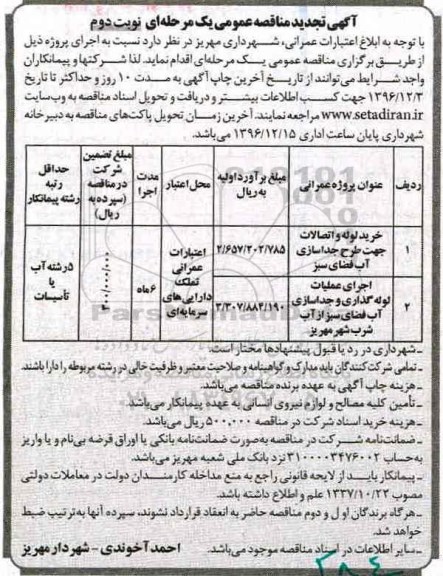 آگهی تجدید مناقصه عمومی یک مرحله‌ای نوبت دوم
با توجه به ابلاغ اعتبارات عمرانی، شهرداری مهریز در نظر دارد نسبت به اجرای پروژه ذیل
از طریق برگزاری مناقصه عمومی یک مرحله‌ای اقدام نماید. لذا شرکتها و پیمانکاران
واجد شرایط می‌توانند از تاریخ آخرین چاپ آگهی به مدت ۱۰ روز و حداکثر تا تاریخ
۱۳۹۶/۱۲/۳ جهت کسب اطلاعات بیشتر و دریافت و تحویل اسناد مناقصه به وب‌سایت
www.setadiran.ir مراجعه نمایند. آخرین زمان تحویل پاکت‌های مناقصه به دبیرخانه
شهرداری پایان ساعت اداری ۱۳۹۶/۱۲/۱۵ می‌باشد.
ردیف عنوان پروژه عمرانی مبلغ برآورد اولیه به ریال محل اعتبار مدت اجرا مبلغ تضمین شرکت در مناقصه (سپرده به ریال) حداقل رتبه رشته پیمانکار
۱ خرید لوله و اتصالات جهت طرح جداسازی آب فضای سبز ۲/۶۵۷/۲۰۲/۷۸۵ اعتبارات عمرانی تملک دارایی‌های سرمایه‌ای ۶ماه ۳۰۰/۰۰۰/۰۰۰ ۵ رشته آب یا تأسیسات
۲ اجرای عملیات لوله گذاری و جداسازی آب فضای سبز از آب شرب شهر مهریز ۳/۳۰۷/۸۸۲/۱۹۰
ـ شهرداری در رد یا قبول پیشنهادها مختار است.
ـ تمامی شرکت کنندگان باید مدارک و گواهینامه و صلاحیت معتبر و ظرفیت خالی در رشته مربوطه را دارا باشند.
ـ هزینه چاپ آگهی به عهده برنده مناقصه می‌باشد.
ـ تأمین کلیه مصالح و لوازم نیروی انسانی به عهده پیمانکار می‌باشد.
ـ هزینه خرید اسناد شرکت در مناقصه ۵۰۰,۰۰۰ ریال می‌باشد.
ـ ضمانت‌نامه شرکت در مناقصه به‌صورت ضمانت‌نامه بانکی یا اوراق قرضه بی‌نام و یا واریز
به حساب ۳۱۰۰۰۰۳۴۷۶۰۰۲ نزد بانک ملی شعبه مهریز می‌باشد.
ـ پیمانکار باید از لایحه قانونی راجع به منع مداخله کارمندان دولت در معاملات دولتی
مصوب ۱۳۳۷/۱۰/۲۲ علم و اطلاع داشته باشد.
ـ هرگاه برندگان اول و دوم مناقصه حاضر به انعقاد قرارداد نشوند، سپرده آنها به‌ترتیب ضبط
خواهد شد.
ـ سایر اطلاعات در اسناد مناقصه موجود می‌باشد. احمد آخوندی - شهردار مهریز